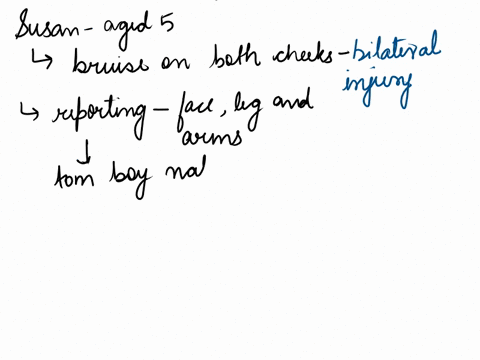 Susan - aged 5
↳ bruise on both cheeks - bilateral injury
↳ reporting - face, leg and arms
↓
tom boy nat